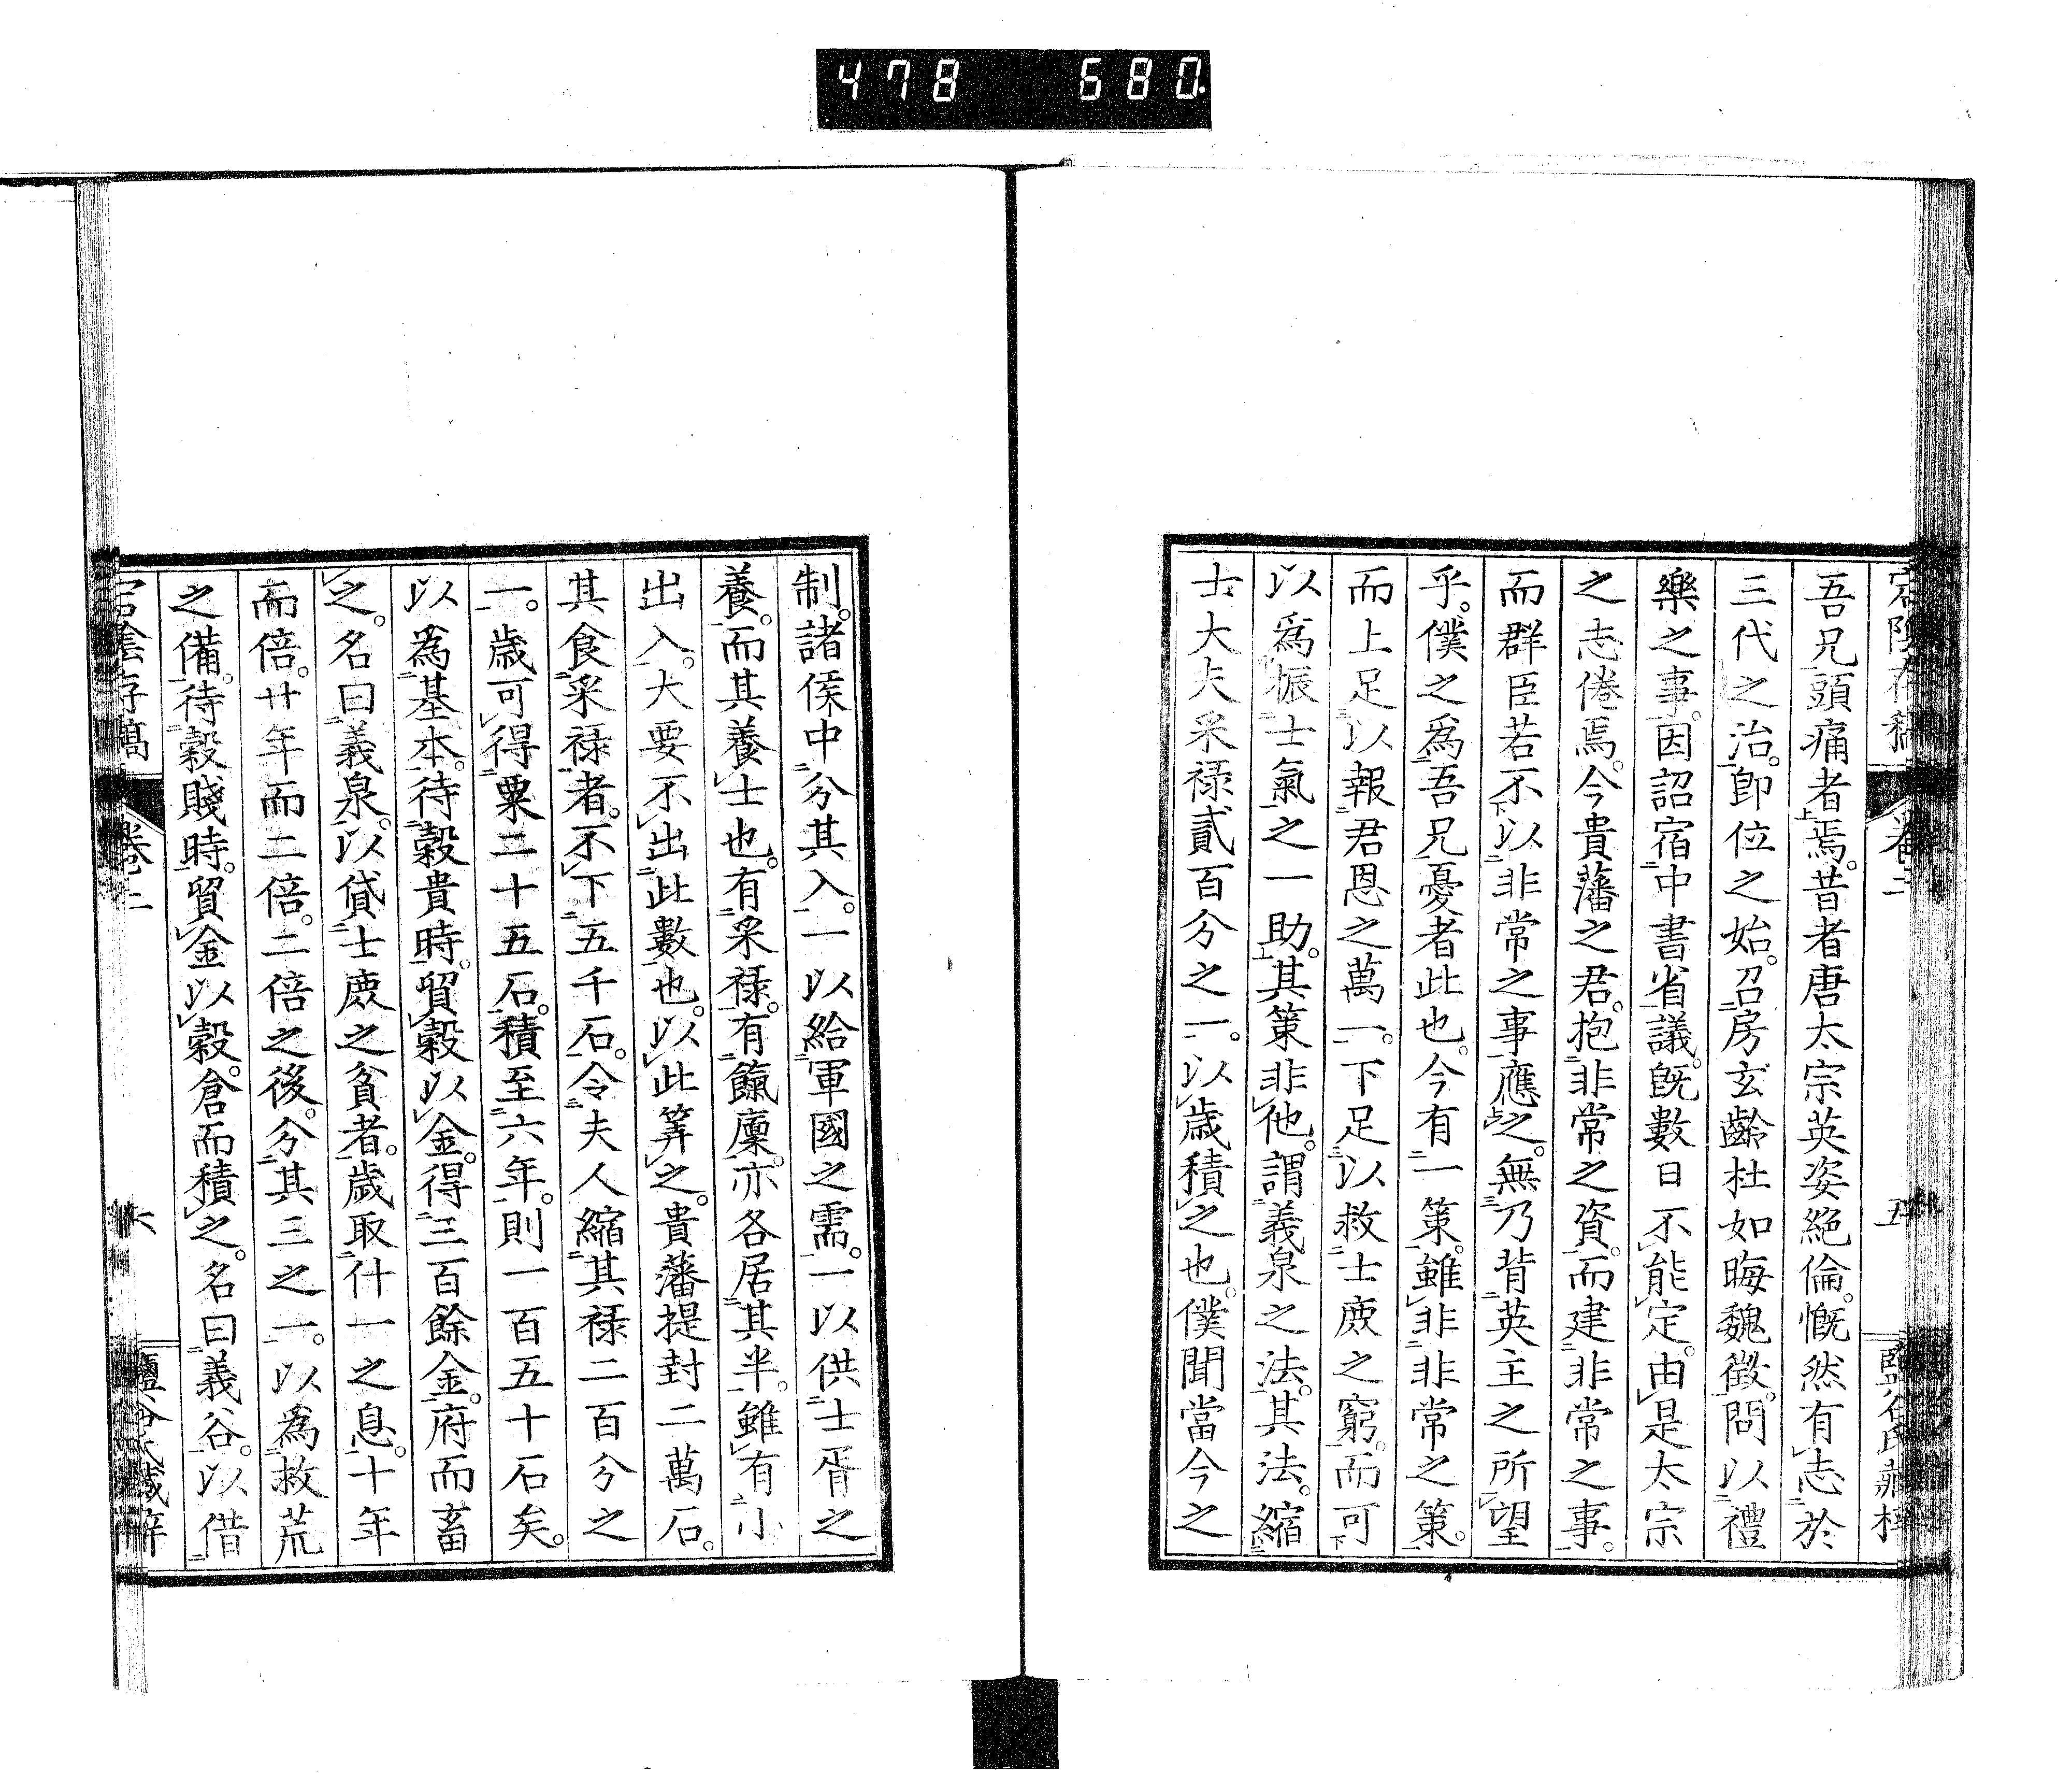 478 680
吾兄頭痛者焉。昔者唐太宗英姿絶倫。慨然有志於
三代之治。卽位之始。召房玄齡杜如晦魏徵。問以禮
樂之事。因詔宿中書省議。旣數日不能定。由是太宗
之志倦焉。今貴藩之君。抱非常之資。而建非常之事。
而群臣若不以非常之事應之。無乃背英主之所望
乎。僕之爲吾兄憂者此也。今有一策。雖非非常之策。
而上足以報君恩之萬一。下足以救士庶之窮。而可
以爲振士氣之一助。其策非他。謂義泉之法。其法。縮
士大夫采禄貳百分之一。以歳積之也。僕聞當今之
制。諸侯中分其入。一以給軍國之需。一以供士胥之
養。而其養士也。有采禄。有餼廩。亦各居其半。雖有小
出入。大要不出此數也。以此筭之。貴藩提封二萬石。
其食采禄者。不下五千石。令夫人縮其禄二百分之
一。歳可得粟二十五石。積至六年。則一百五十石矣。
以為基本。待穀貴時。貿穀以金。得三百餘金。府而畜
之。名曰義泉。以貸士庶之貧者。歳取什一之息。十年
而倍。廿年而二倍。二倍之後。分其三之一。以為救荒
之備。待穀賤時。貿金以穀。倉而積之。名曰義谷。以借
卷二
六